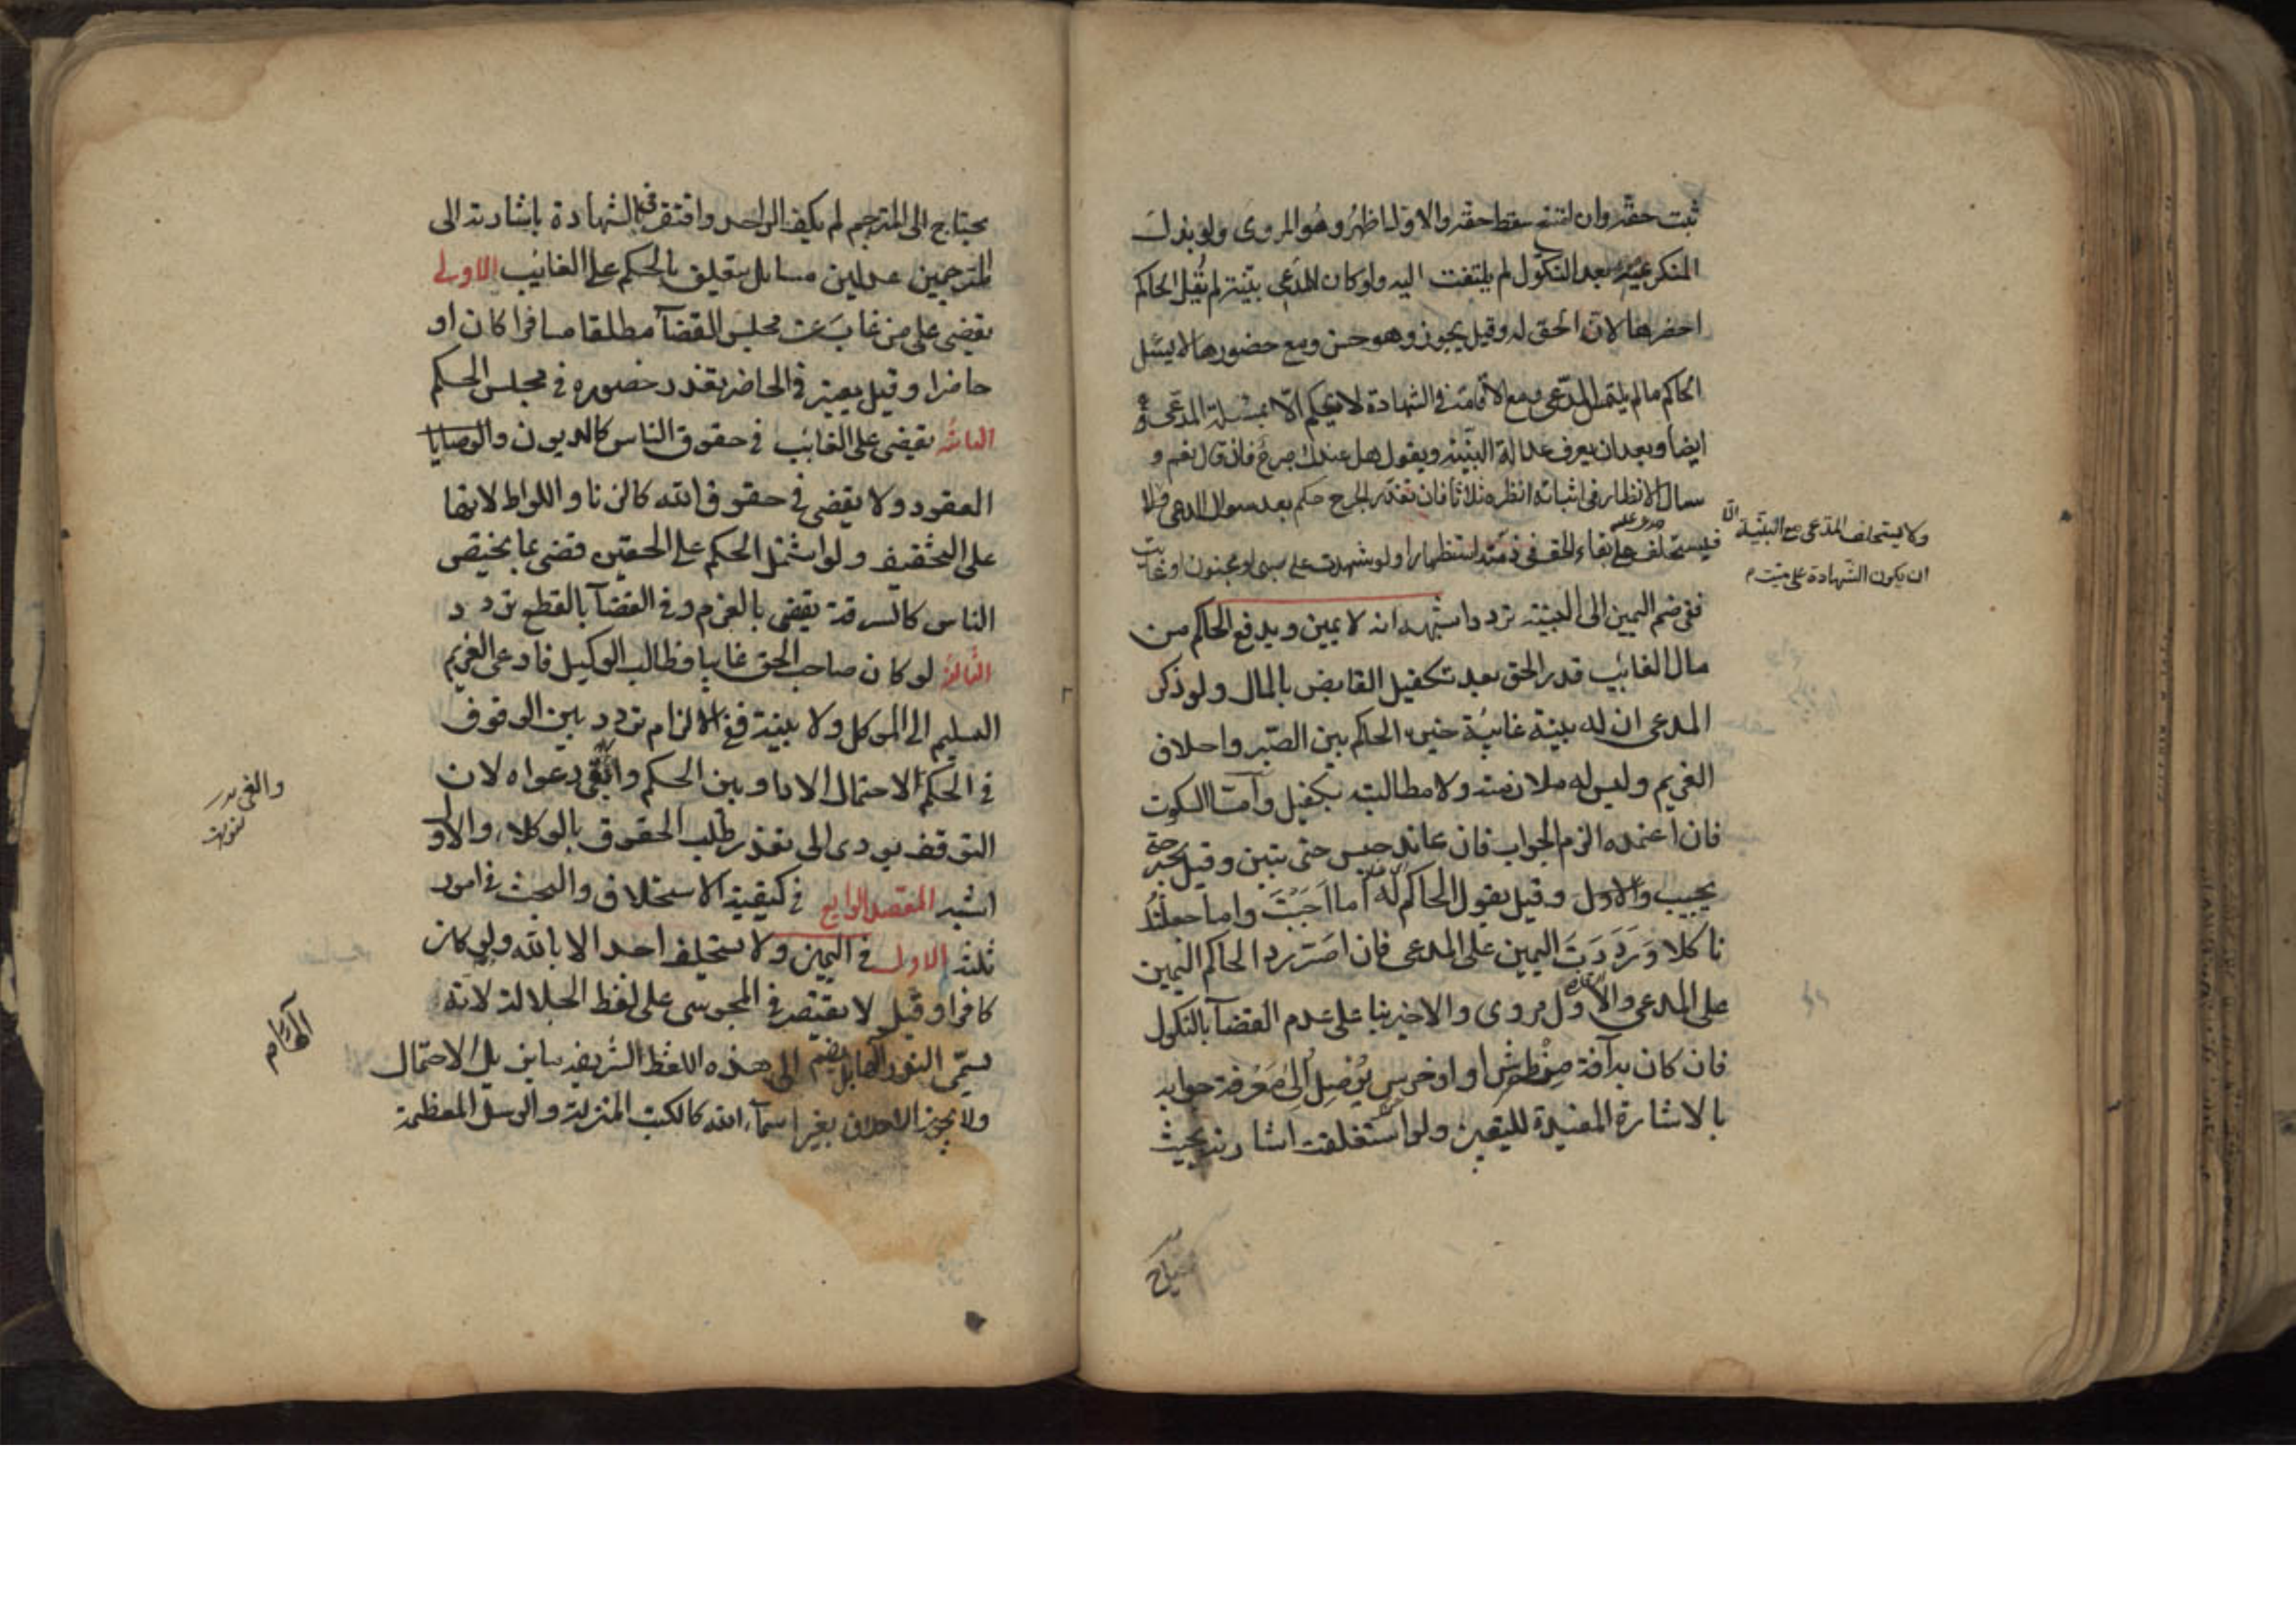 ثبت حقه وان امتنع سقط حقه والاول اظهر وهو المروى ولو بذل
المنكر يمينه بعد النكول لم يلتفت اليه ولو كان للمدعى بينة لم يقل الحاكم
احضرها لان الحق له وقيل يجوز وهو حسن ومع حضورها لا يسئل
الحاكم ما لم يلتمس المدعى ومع الاقامة فى الشهادة لا يحكم الا بمسئلة المدعى
ايضا وبعد ان يعرف عدالة البينة ويقول هل عندك جرح فان قال نعم و
سال الانظار فى اثباته انظره ثلاثا فان تعذر الجرح حكم بعد سوال المدعى
ولا يستحلف المدعى مع البينة الا
ان يكون الشهادة على ميت
فيستحلف على بقاء الحق فى ذمته استظهارا ولو شهدت على صبى او مجنون او غايب
ففى ضم اليمين الى البينة تردد اشبهه انه لا يمين ويدفع الحاكم من
مال الغائب قدر الحق بعد تكفيل القابض بالمال ولو ذكر
المدعى ان له بينة غائبة خيره الحاكم بين الصبر واحلاف
الغريم وليس له ملازمته ولا مطالبته بكفيل واما السكوت
فان اعتمده الزم الجواب فان عاند حبس حتى يتبين وقيل يجبر حتى
يجيب والاول وقيل يقول الحاكم له اما اجبت واما جعلتك
ناكلا ورددت اليمين على المدعى فان اصر رد الحاكم اليمين
على المدعى والاول مروى والاخير بناء على عدم القضآ بالنكول
فان كان به آفة من طرش او خرس توصل الى معرفة جوابه
بالاشارة المفيدة لليقين ولو استغلقت اشارته بحيث
يحتاج
يحتاج الى المترجم لم يكف الواحد وافتقر فى الشهادة باشارته الى
المترجمين عدلين مسايل يتعلق بالحكم على الغائب الاولى
يقضى على من غاب عن مجلس القضآ مطلقا مسافرا كان او
حاضرا وقيل يعتبر فى الحاضر تعذر حضوره فى مجلس الحكم
الثانية يقضى على الغائب فى حقوق الناس كالديون والوصايا
العقود ولا يقضى فى حقوق الله كالزنا واللواط لانها
على التخفيف ولو اشتمل الحكم على الحقين قضى بما يختص
الناس كالسرقة يقضى بالغرم وفى القضآ بالقطع تردد
الثالثة لو كان صاحب الحق غايبا فطالب الوكيل فادعى الغريم
التسليم الى الموكل ولا بينة ففى الالزام تردد بين الوقوف
فى الحكم لاحتمال الادا وبين الحكم والغى دعواه لان
التوقف يودى الى تعذر طلب الحقوق بالوكلاء والاول
اشبه المقصد الرابع فى كيفية الاستحلاف والبحث فى امور
ثلثة الاول فى اليمين ولا يستحلف احد الا بالله ولو كان
كافرا وقيل لا يقتصر فى المجوسى على لفظ الجلالة لانه
يسمى النور الها بل يضم الى هذه اللفظ الشريفة ما يزيل الاحتمال
ولا يجوز الاحلاف بغير اسمآء الله كالكتب المنزلة والرسل المعظمة